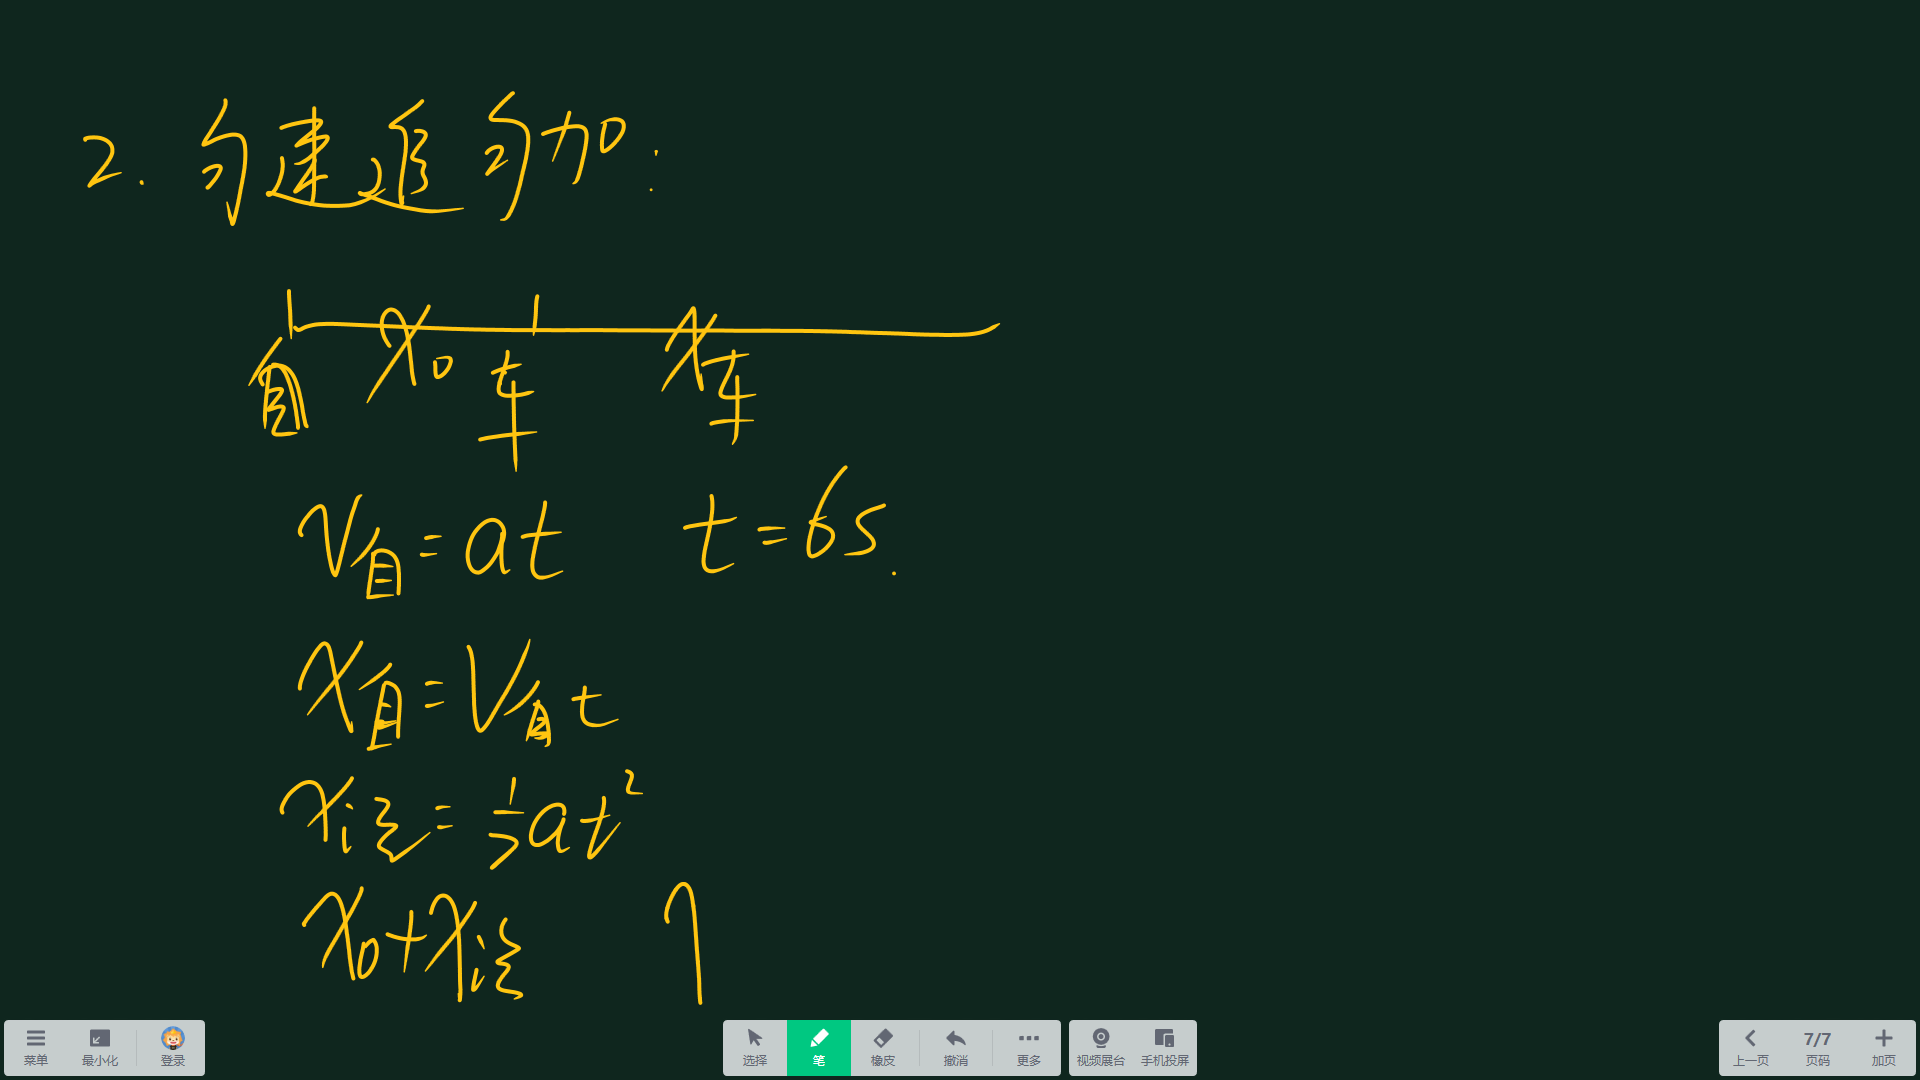 2. 匀速追匀加:
x₀ x车
自 车
v自=at t=6s.
x自=v自t
x汽=½at²
x₀+x汽
菜单 最小化 登录 选择 笔 橡皮 撤消 更多 视频展台 手机投屏 上一页 7/7 页码 加页